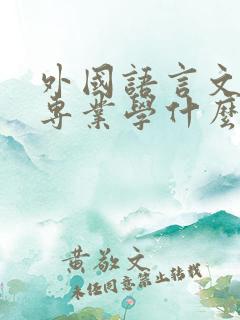 外國語言文
專業學什麼
黄敬文
未经同意禁止转载